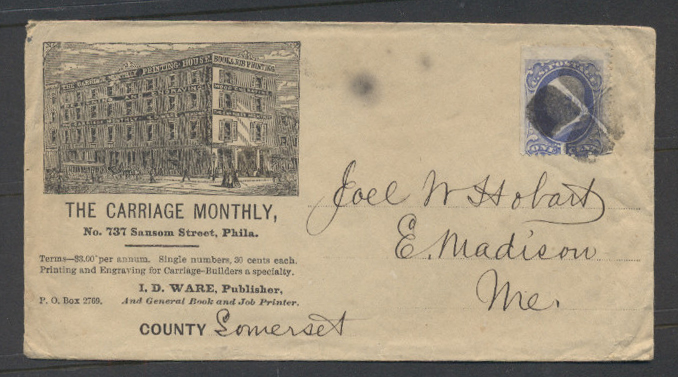 THE CARRIAGE MONTHLY PRINTING HOUSE BOOK & JOB PRINTING
THE CARRIAGE MONTHLY,
No. 737 Sansom Street, Phila.
Terms—$3.00 per annum. Single numbers, 30 cents each.
Printing and Engraving for Carriage-Builders a specialty.
I. D. WARE, Publisher,
P. O. Box 2769. And General Book and Job Printer.
COUNTY Somerset
Joel W Hobart
E. Madison
Me.